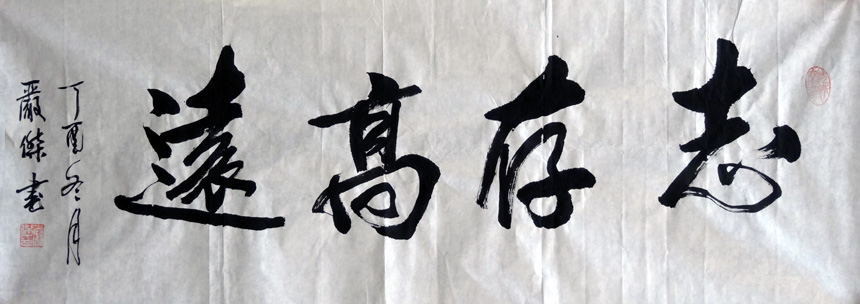 志存高遠
丁酉冬月
嚴傑書